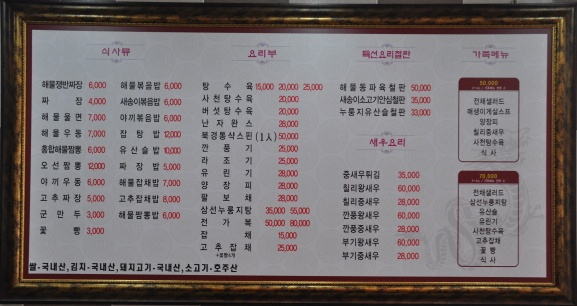 식사류
해물쟁반짜장 6,000
짜장 4,000
해물울면 7,000
해물우동 7,000
홍합해물짬뽕 6,000
오선짬뽕 12,000
야끼우동 6,000
고추짜장 5,000
군만두 3,000
꽃빵 3,000
해물볶음밥 6,000
새송이볶음밥 6,000
야끼볶음밥 6,000
잡탕밥 10,000
유산슬밥 10,000
짜장밥 5,000
해물잡채밥 7,000
고추잡채밥 8,000
해물짬뽕밥 6,000
요리부
탕수육 15,000 20,000 25,000
사천탕수육 20,000
버섯탕수육 20,000
난자완스 28,000
북경통삭스핀(1人) 50,000
깐풍기 25,000
라조기 25,000
유린기 28,000
양장피 28,000
팔보채 28,000
삼선누룽지탕 35,000 55,000
전가복 50,000 80,000
잡채 15,000
고추잡채 25,000
+꽃빵4개
특선요리철판
해물동파육철판 50,000
새송이소고기안심철판 35,000
누룽지유산슬철판 33,000
새우요리
중새우튀김 35,000
칠리왕새우 60,000
칠리중새우 28,000
깐풍왕새우 60,000
깐풍중새우 28,000
부기왕새우 60,000
부기중새우 28,000
가족메뉴
50,000
전채샐러드
매생이게살스프
양장피
칠리중새우
사천탕수육
식사
70,000
전채샐러드
삼선누룽지탕
유산슬
유린기
사천탕수육
고추잡채
꽃빵
식사
쌀-국내산,김치-국내산,돼지고기-국내산,소고기-호주산